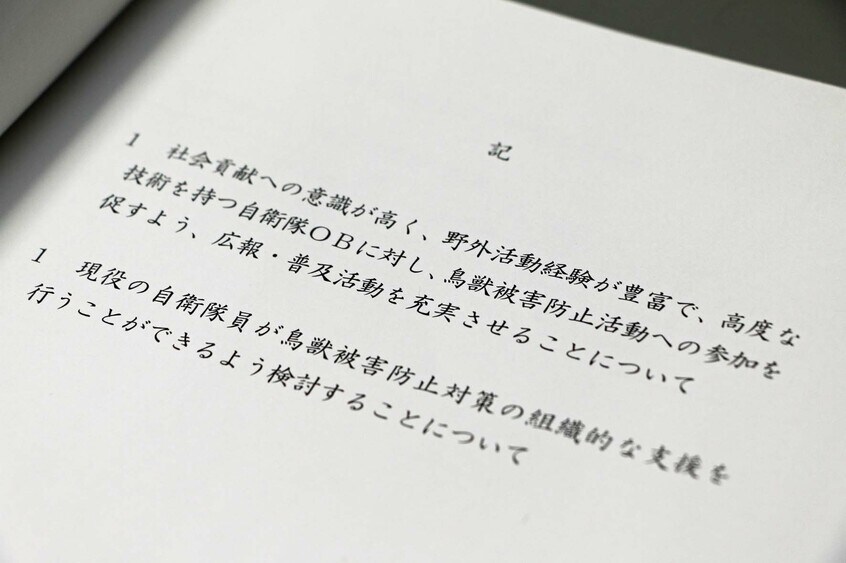 記
1　社会貢献への意識が高く、野外活動経験が豊富で、高度な
技術を持つ自衛隊ＯＢに対し、鳥獣被害防止活動への参加を
促すよう、広報・普及活動を充実させることについて
1　現役の自衛隊員が鳥獣被害防止対策の組織的な支援を
行うことができるよう検討することについて